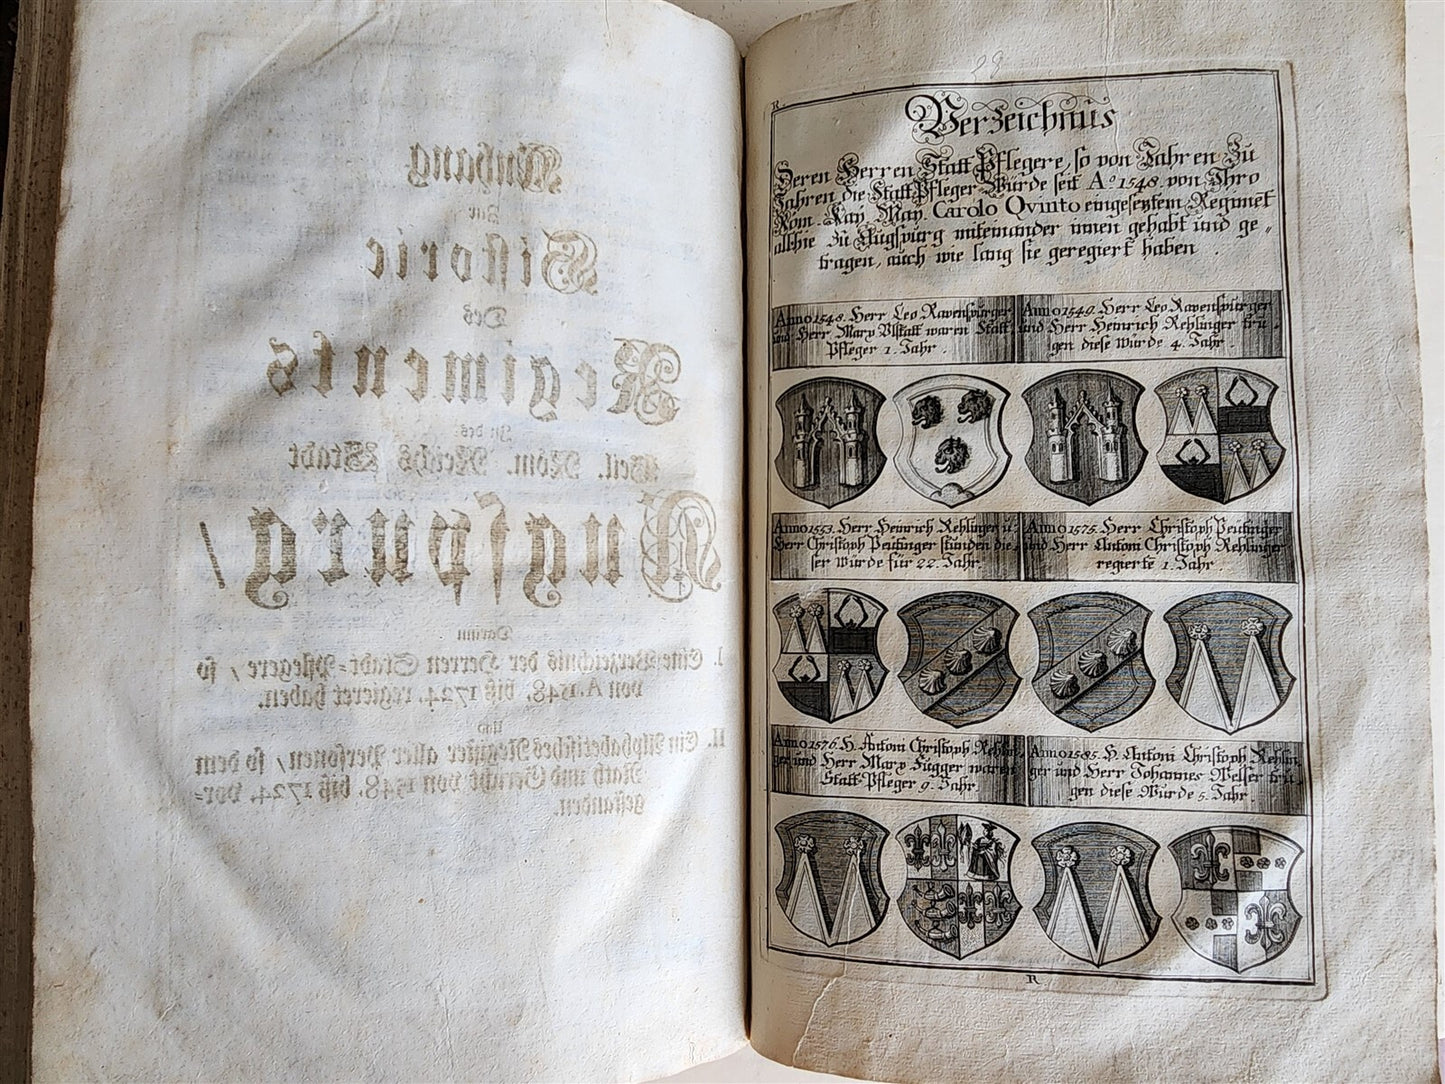 Anhang
Zur
Historie
Des
Regiments
In des
Heil. Röm. Reichs Stadt
Augspurg/
Darinn
I. Eine Verzeichnis der Herren Stadt-Pflegere / so
von A. 1548. biß 1724. regieret haben.
Und
II. Ein Alphabetisches Register aller Personen / so dem
Rath und Gericht von 1548. biß 1724. vor-
gestanden.
28
R.
Verzeichnus
Deren Herren Statt Pflegere, so von Jahren Zu
Jahren die Statt-Pfleger-Würde seit A.º 1548. von Ihro
Röm. Kay. May. Carolo Qvinto eingesetztem Regimet
allhie Zu Augspurg miteinander innen gehabt und ge„
tragen, auch wie lang sie geregiert haben.
Anno 1548. Herr Leo Ravenspurger
und Herr Marx Vlstatt waren Statt
Pfleger 1. Jahr.
Anno 1549. Herr Leo Ravenspurger
und Herr Heinrich Rehlinger tru„
gen diese würde 4. Jahr.
Anno 1553. Herr Heinrich Rehlinger u.
Herr Christoph Peutinger stunden die„
ser würde für 22. Jahr.
Anno 1575. Herr Christoph Peutinger
und Herr Antoni Christoph Rehlinger
regierte 1. Jahr.
Anno 1576. H. Antoni Christoph Rehlin„
ger und Herr Marx Fugger waren
Statt-Pfleger 9. Jahr.
Anno 1585. H. Antoni Christoph Rehlin„
ger und Herr Johannes Welser tru„
gen diese Würde 5. Jahr.
R